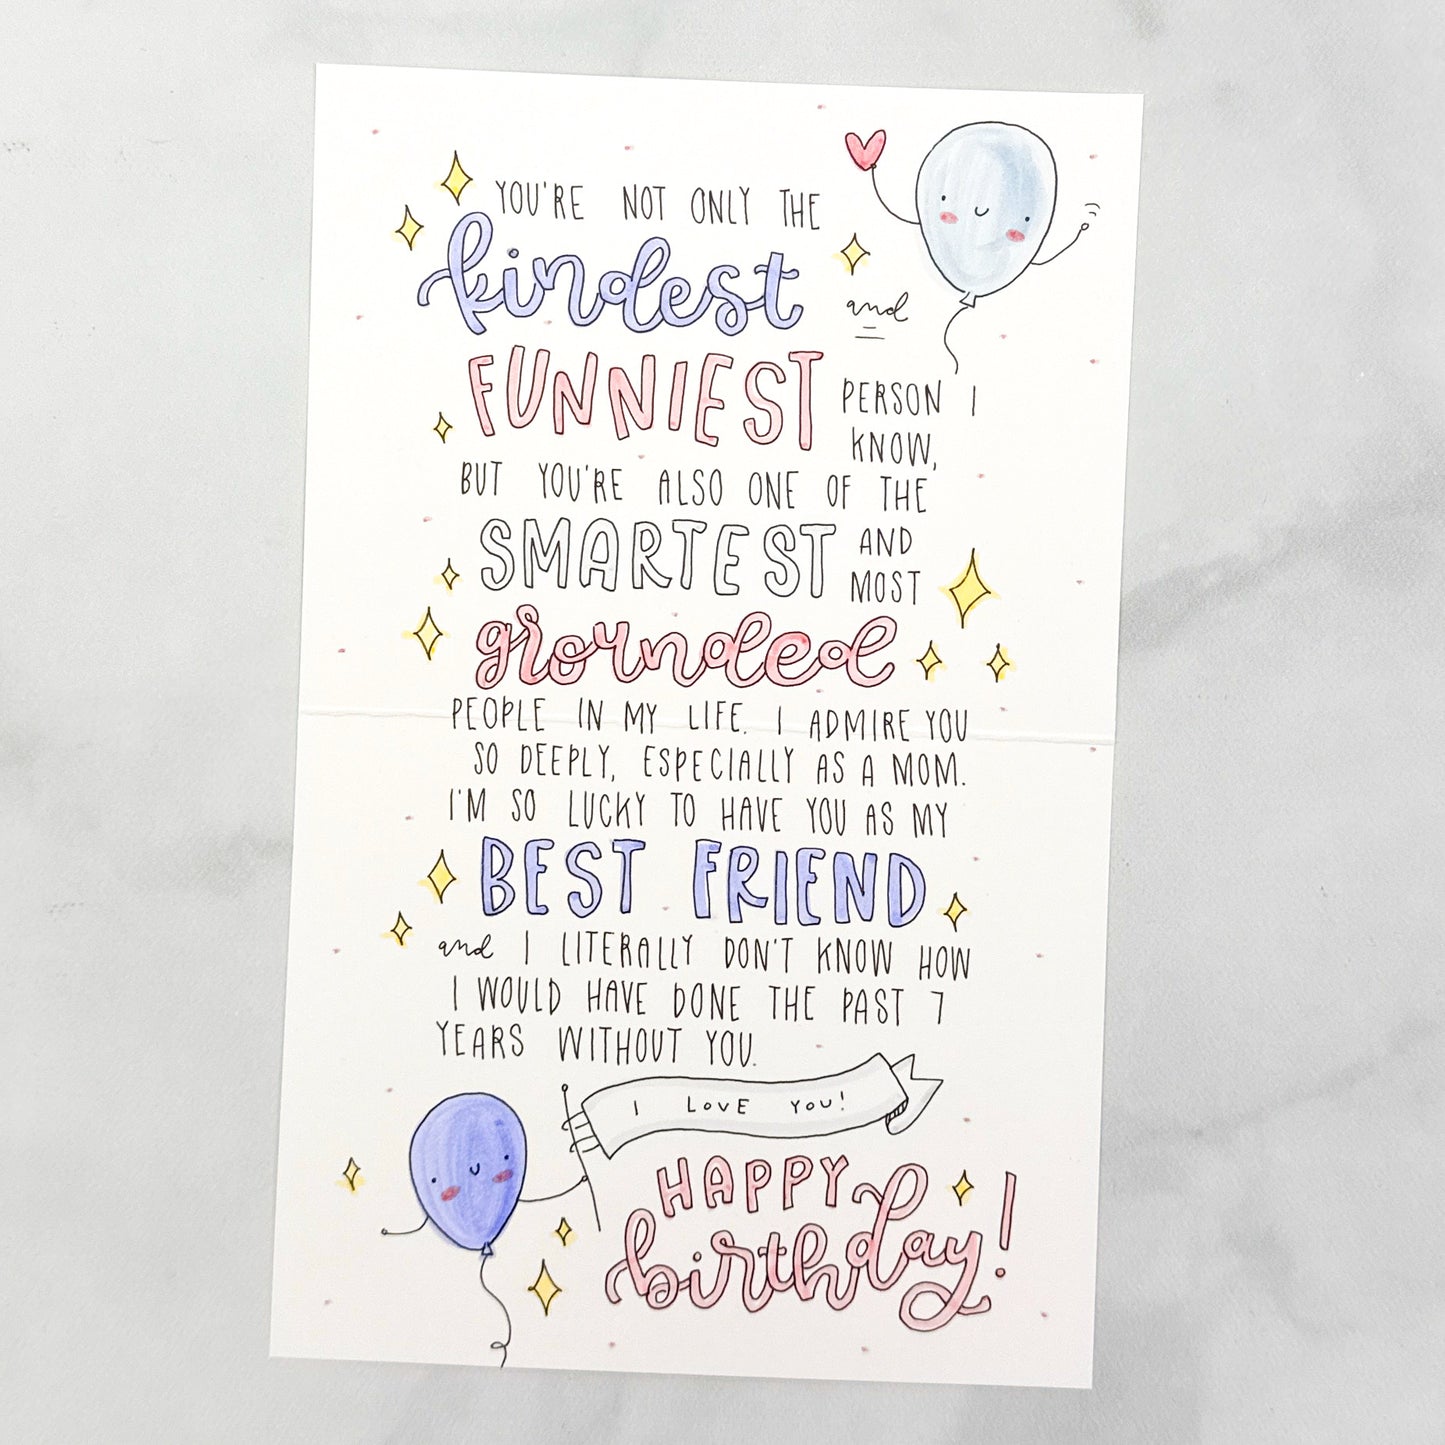 YOU'RE NOT ONLY THE
kindest and
FUNNIEST PERSON I
KNOW,
BUT YOU'RE ALSO ONE OF THE
SMARTEST AND
MOST
grounded
PEOPLE IN MY LIFE. I ADMIRE YOU
SO DEEPLY, ESPECIALLY AS A MOM.
I'M SO LUCKY TO HAVE YOU AS MY
BEST FRIEND
and I LITERALLY DON'T KNOW HOW
I WOULD HAVE DONE THE PAST 7
YEARS WITHOUT YOU.
I LOVE YOU!
HAPPY
birthday!